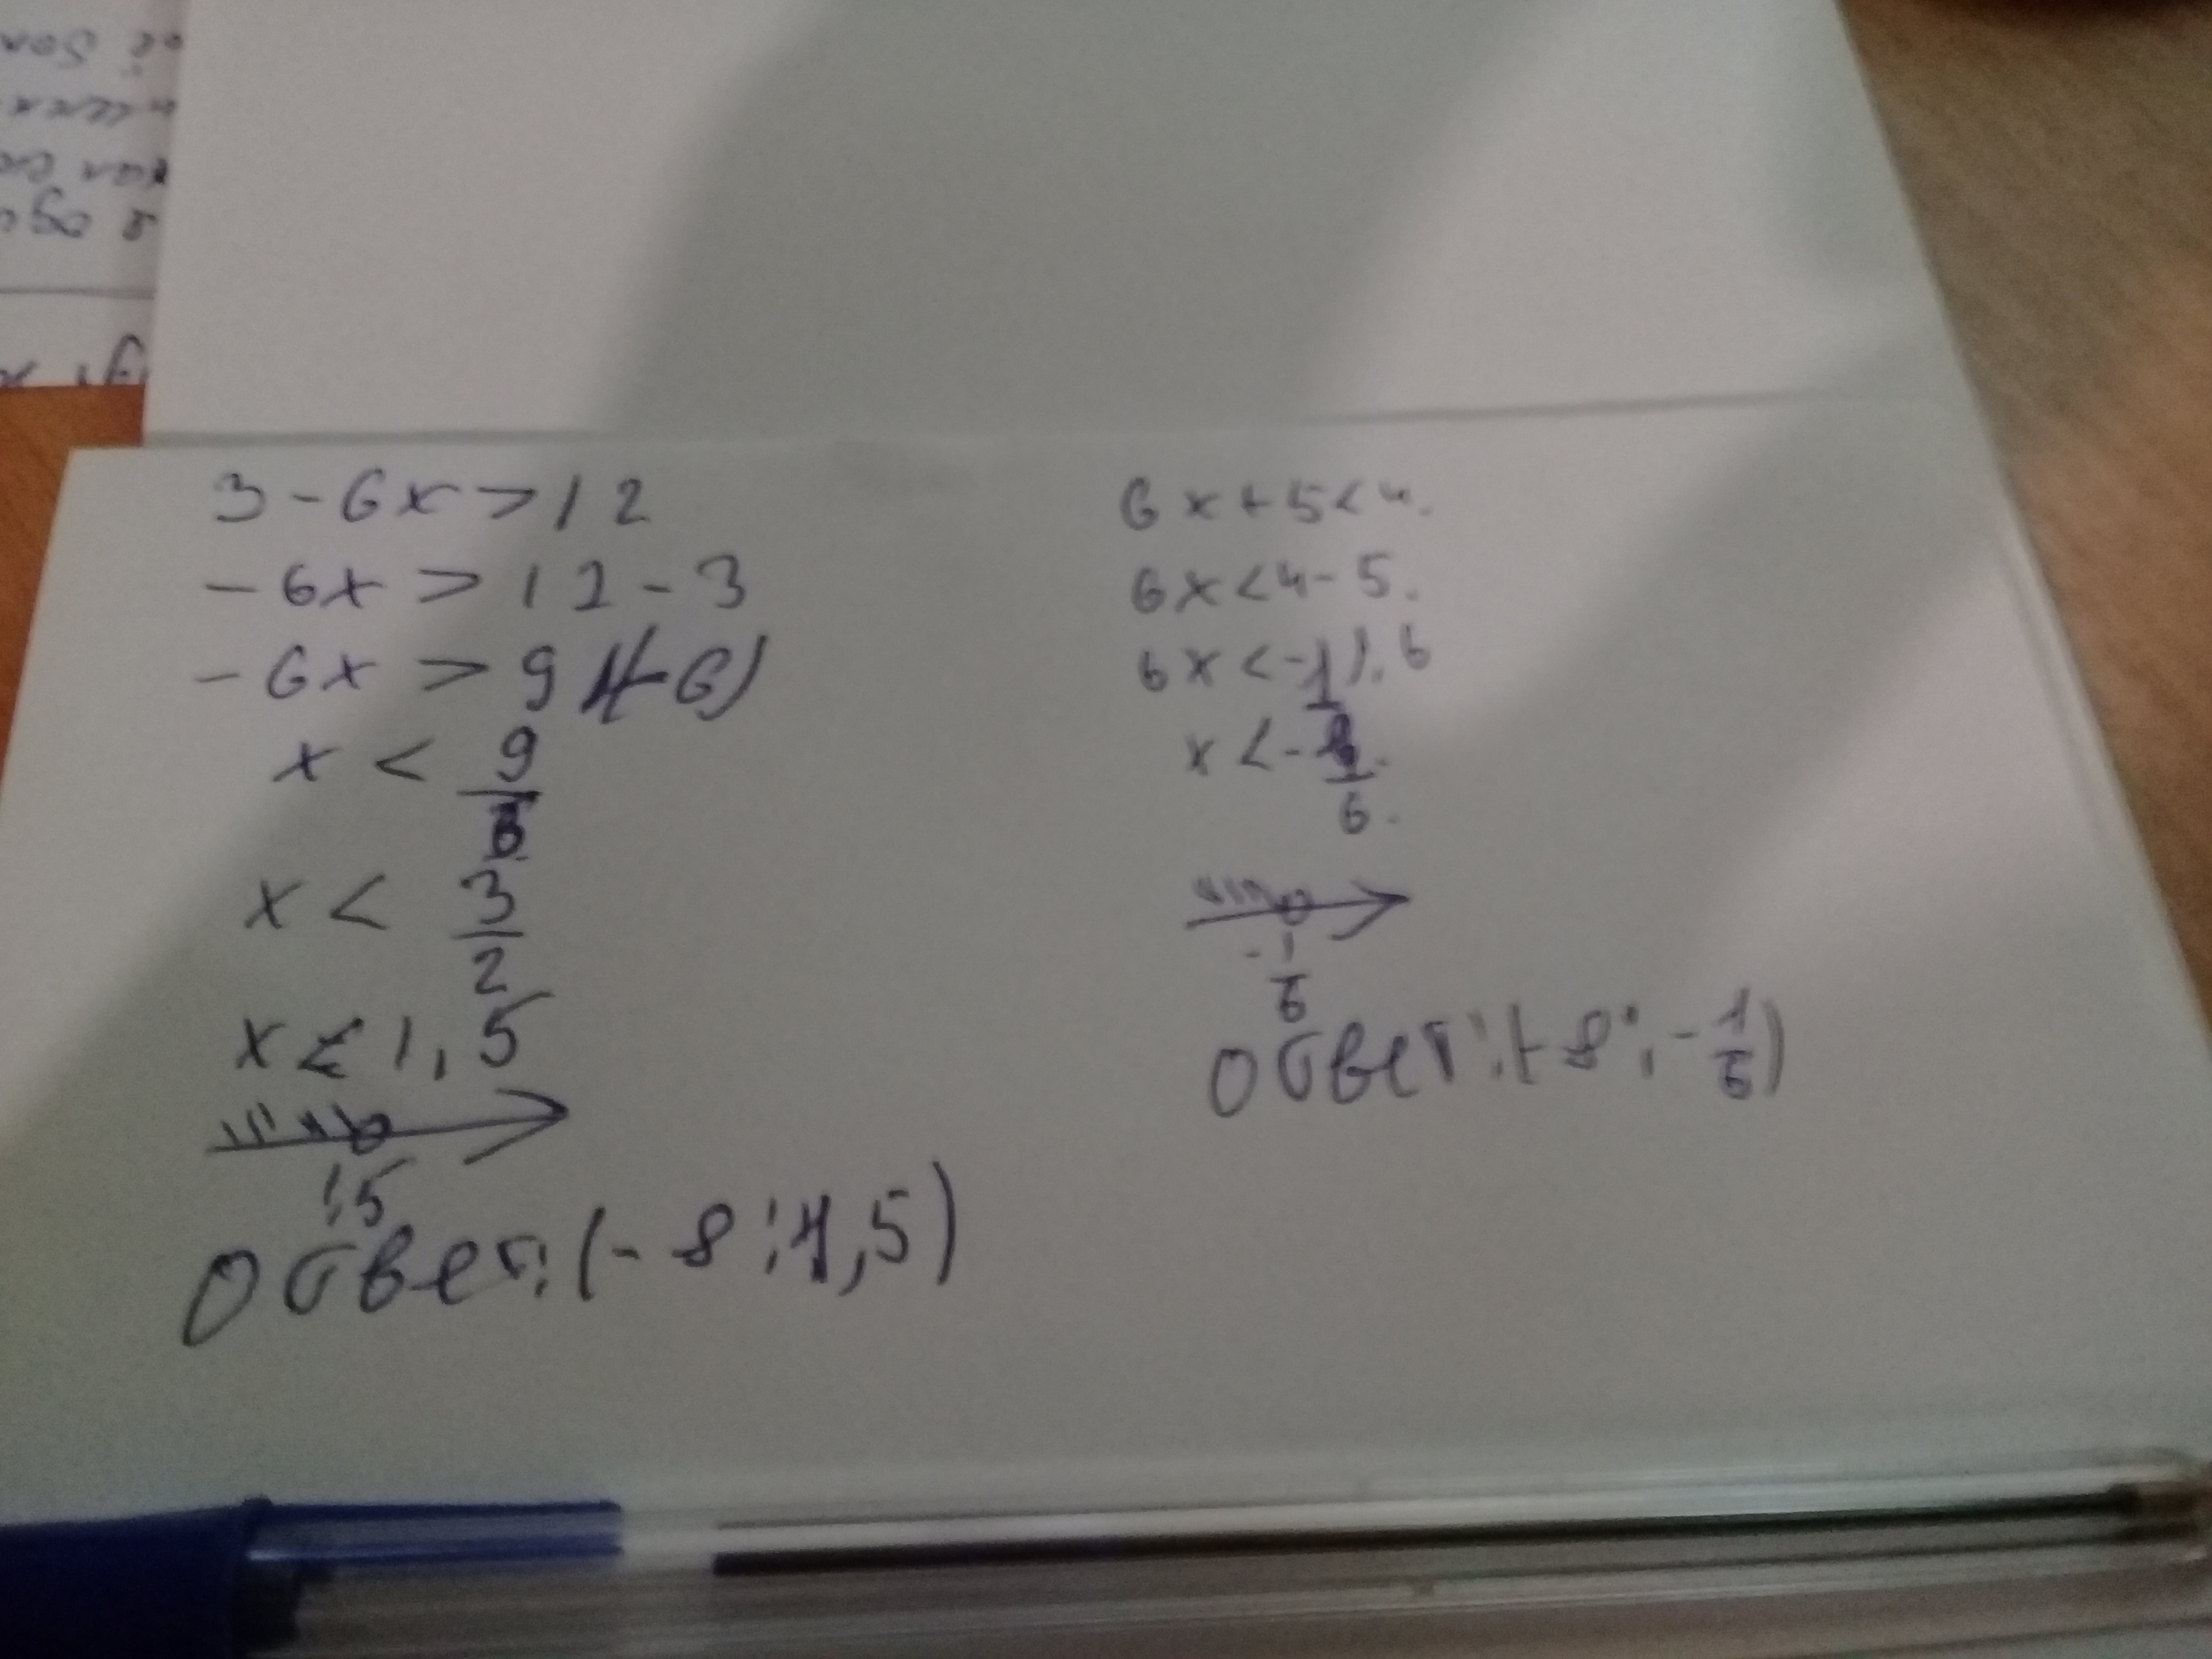 3 - 6x > 12
- 6x > 12 - 3
- 6x > 9 /(-6)
x < 9/6
x < 3/2
x < 1,5
1,5
Ответ: (- 8 ; 1,5)
6x + 5 < 4.
6x < 4 - 5.
6x < -1 /: 6
x < - 1/6.
- 1/6
Ответ: (- 8 ; - 1/6)